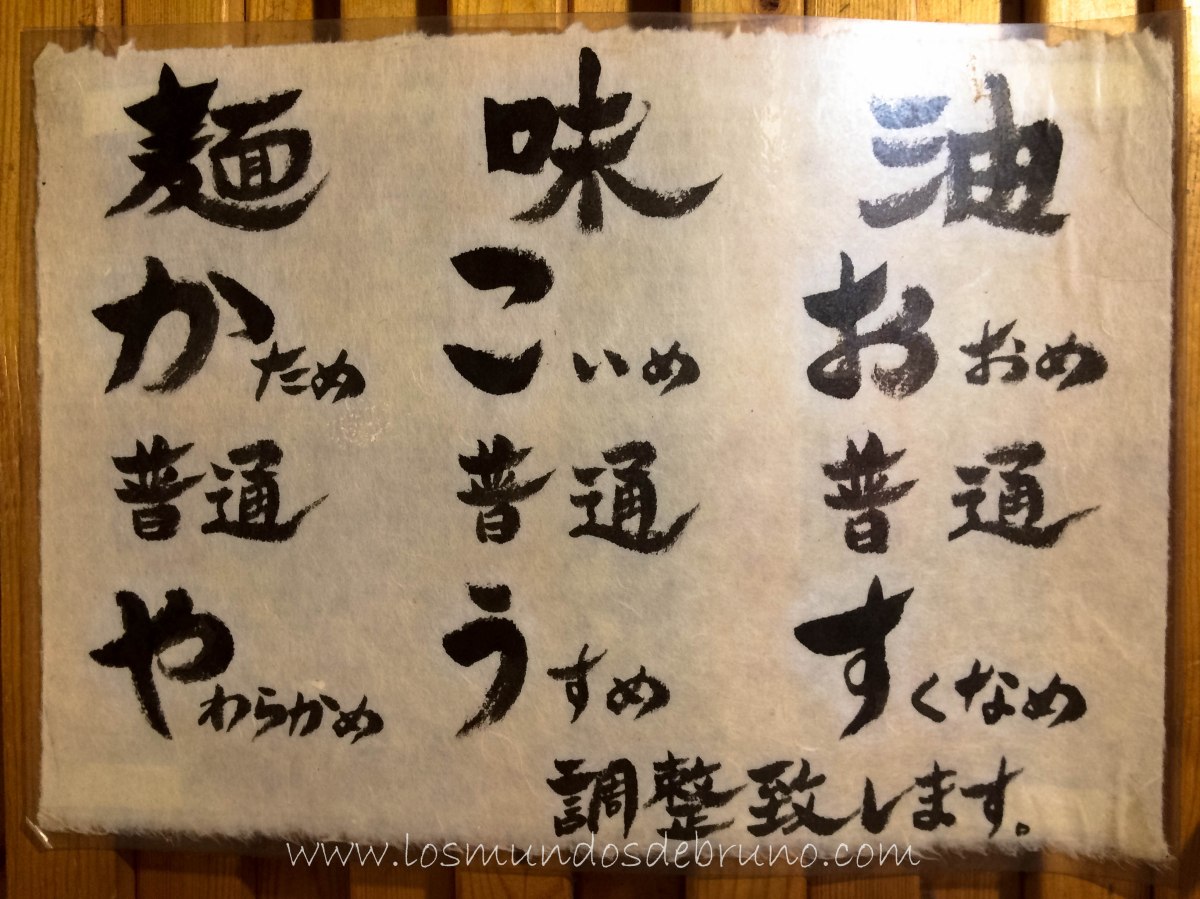 麺 味 油
かため こいめ おおめ
普通 普通 普通
やわらかめ うすめ すくなめ
調整致します。
www.losmundosdebruno.com